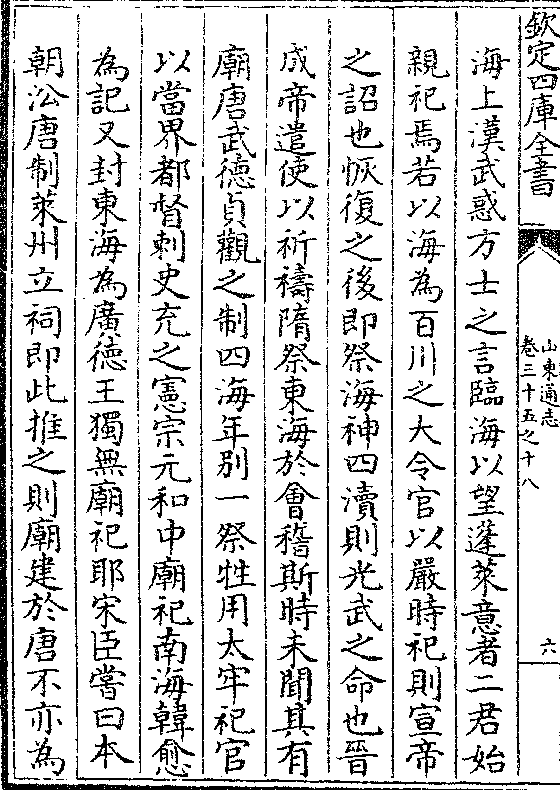 欽定四庫全書
山東通志
卷三十五之十八
六
海上漢武惑方士之言臨海以望蓬萊意者二君始
親祀焉若以海為百川之大令官以嚴時祀則宣帝
之詔也恢復之後即祭海神四瀆則光武之命也晉
成帝遣使以祈禱隋祭東海於會稽斯時未聞其有
廟唐武德貞觀之制四海年别一祭牲用太牢祀官
以當界都督刺史充之憲宗元和中廟祀南海韓愈
為記又封東海為廣德王獨無廟祀耶宋臣嘗曰本
朝㳂唐制萊州立祠即此推之則廟建於唐不亦為